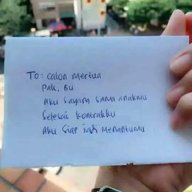 To: Calon mertua
Pak, Bu
Aku Sayang sama anakmu
Selesai kontrakku
Aku Siap jadi Menantumu